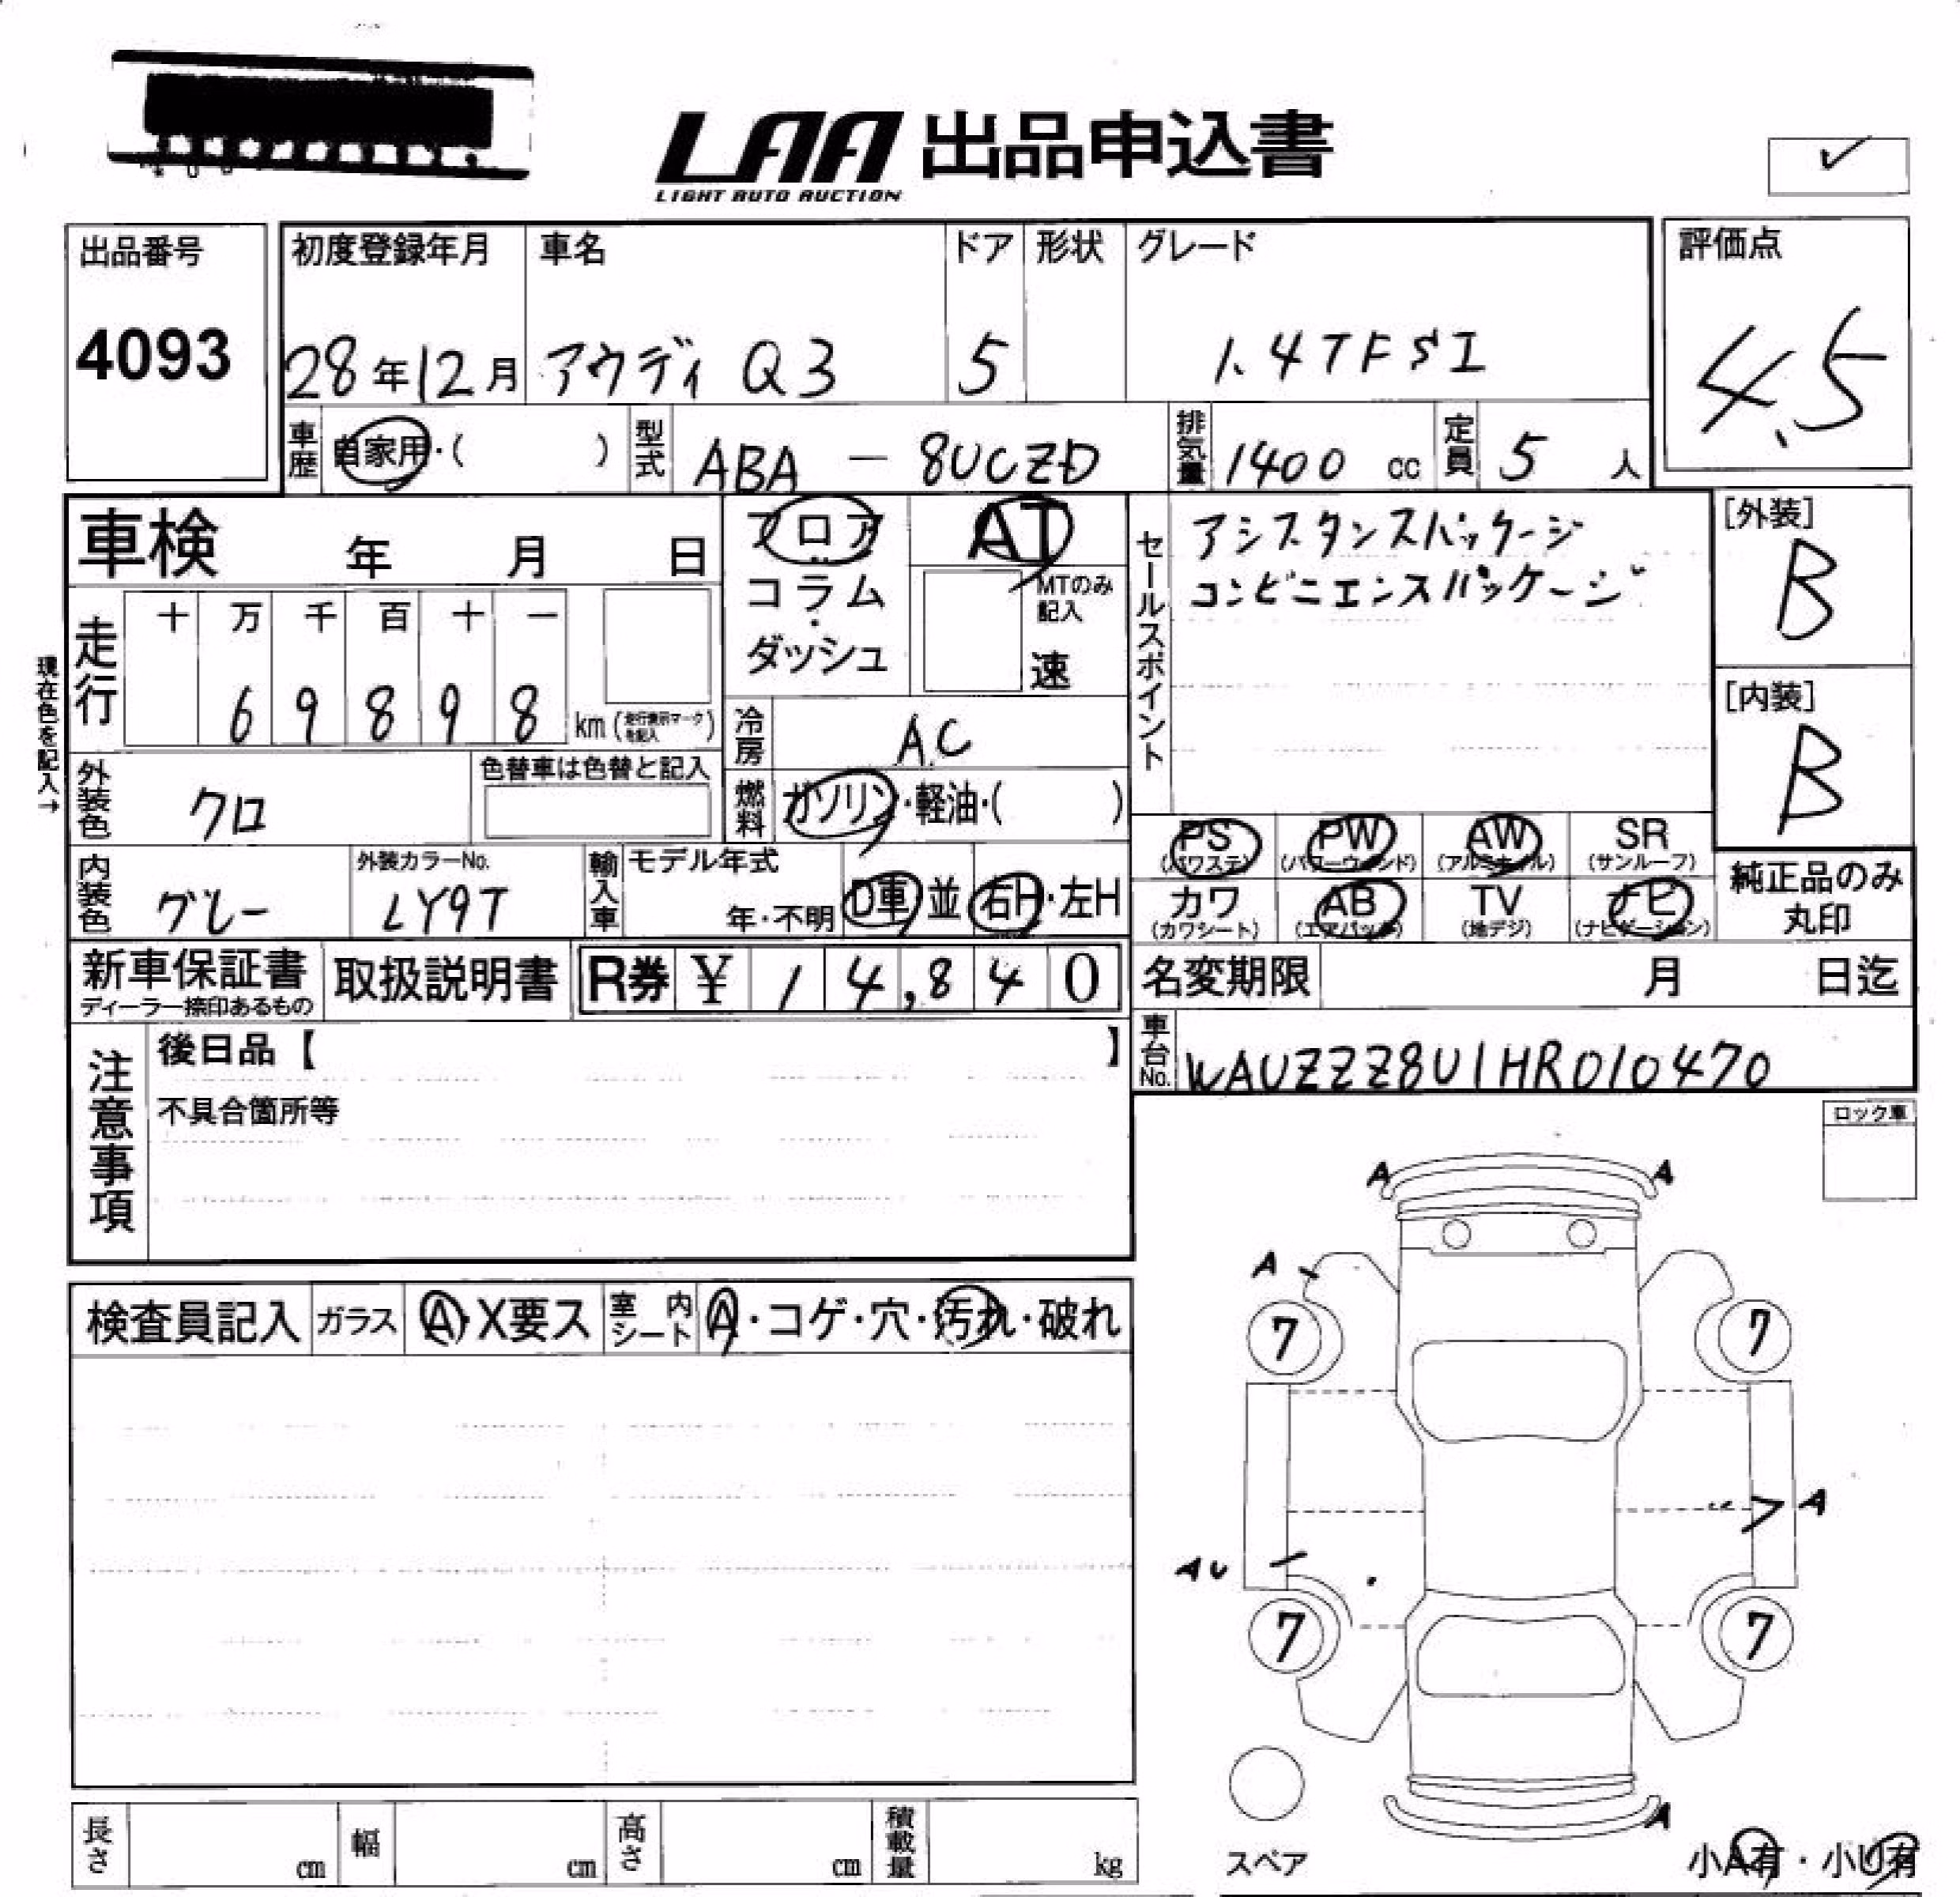 LAA 出品申込書
LIGHT AUTO AUCTION
✓
出品番号
4093
初度登録年月 車名 ドア 形状 グレード
28年12月 アウディ Q3 5 1.4TFSI
評価点
4.5
車歴 自家用・( ) 型式 ABA - 8UCZD 排気量 1400 cc 定員 5 人
車検 年 月 日
フロア
コラム
ダッシュ
AT
MTのみ記入
速
セールスポイント
アシスタンスパッケージ
コンビニエンスパッケージ
[外装]
B
[内装]
B
現在色を記入→
走行 十 万 千 百 十 一
6 9 8 9 8 km (走行表示マークを記入)
冷房 AC
外装色 クロ 色替車は色替と記入
燃料 ガソリン・軽油・( )
PS (パワステ) PW (パワーウィンド) AW (アルミホイル) SR (サンルーフ)
カワ (カワシート) AB (エアバック) TV (地デジ) ナビ (ナビゲーション)
純正品のみ
丸印
内装色 グレー 外装カラーNo. LY9T 輸入車 モデル年式 年・不明 D車 並 右H・左H
新車保証書 ディーラー捺印あるもの 取扱説明書 R券 ¥ 14,840
名変期限 月 日迄
車台No. WAUZZZ8U1HR010470
注意事項
後日品【 】
不具合箇所等
ロック車
検査員記入 ガラス A・X要ス 室内シート A・コゲ・穴・汚れ・破れ
A A
A
7 7
A
AU
7 7
A
スペア
小A有・小U有
長さ cm 幅 cm 高さ cm 積載量 kg